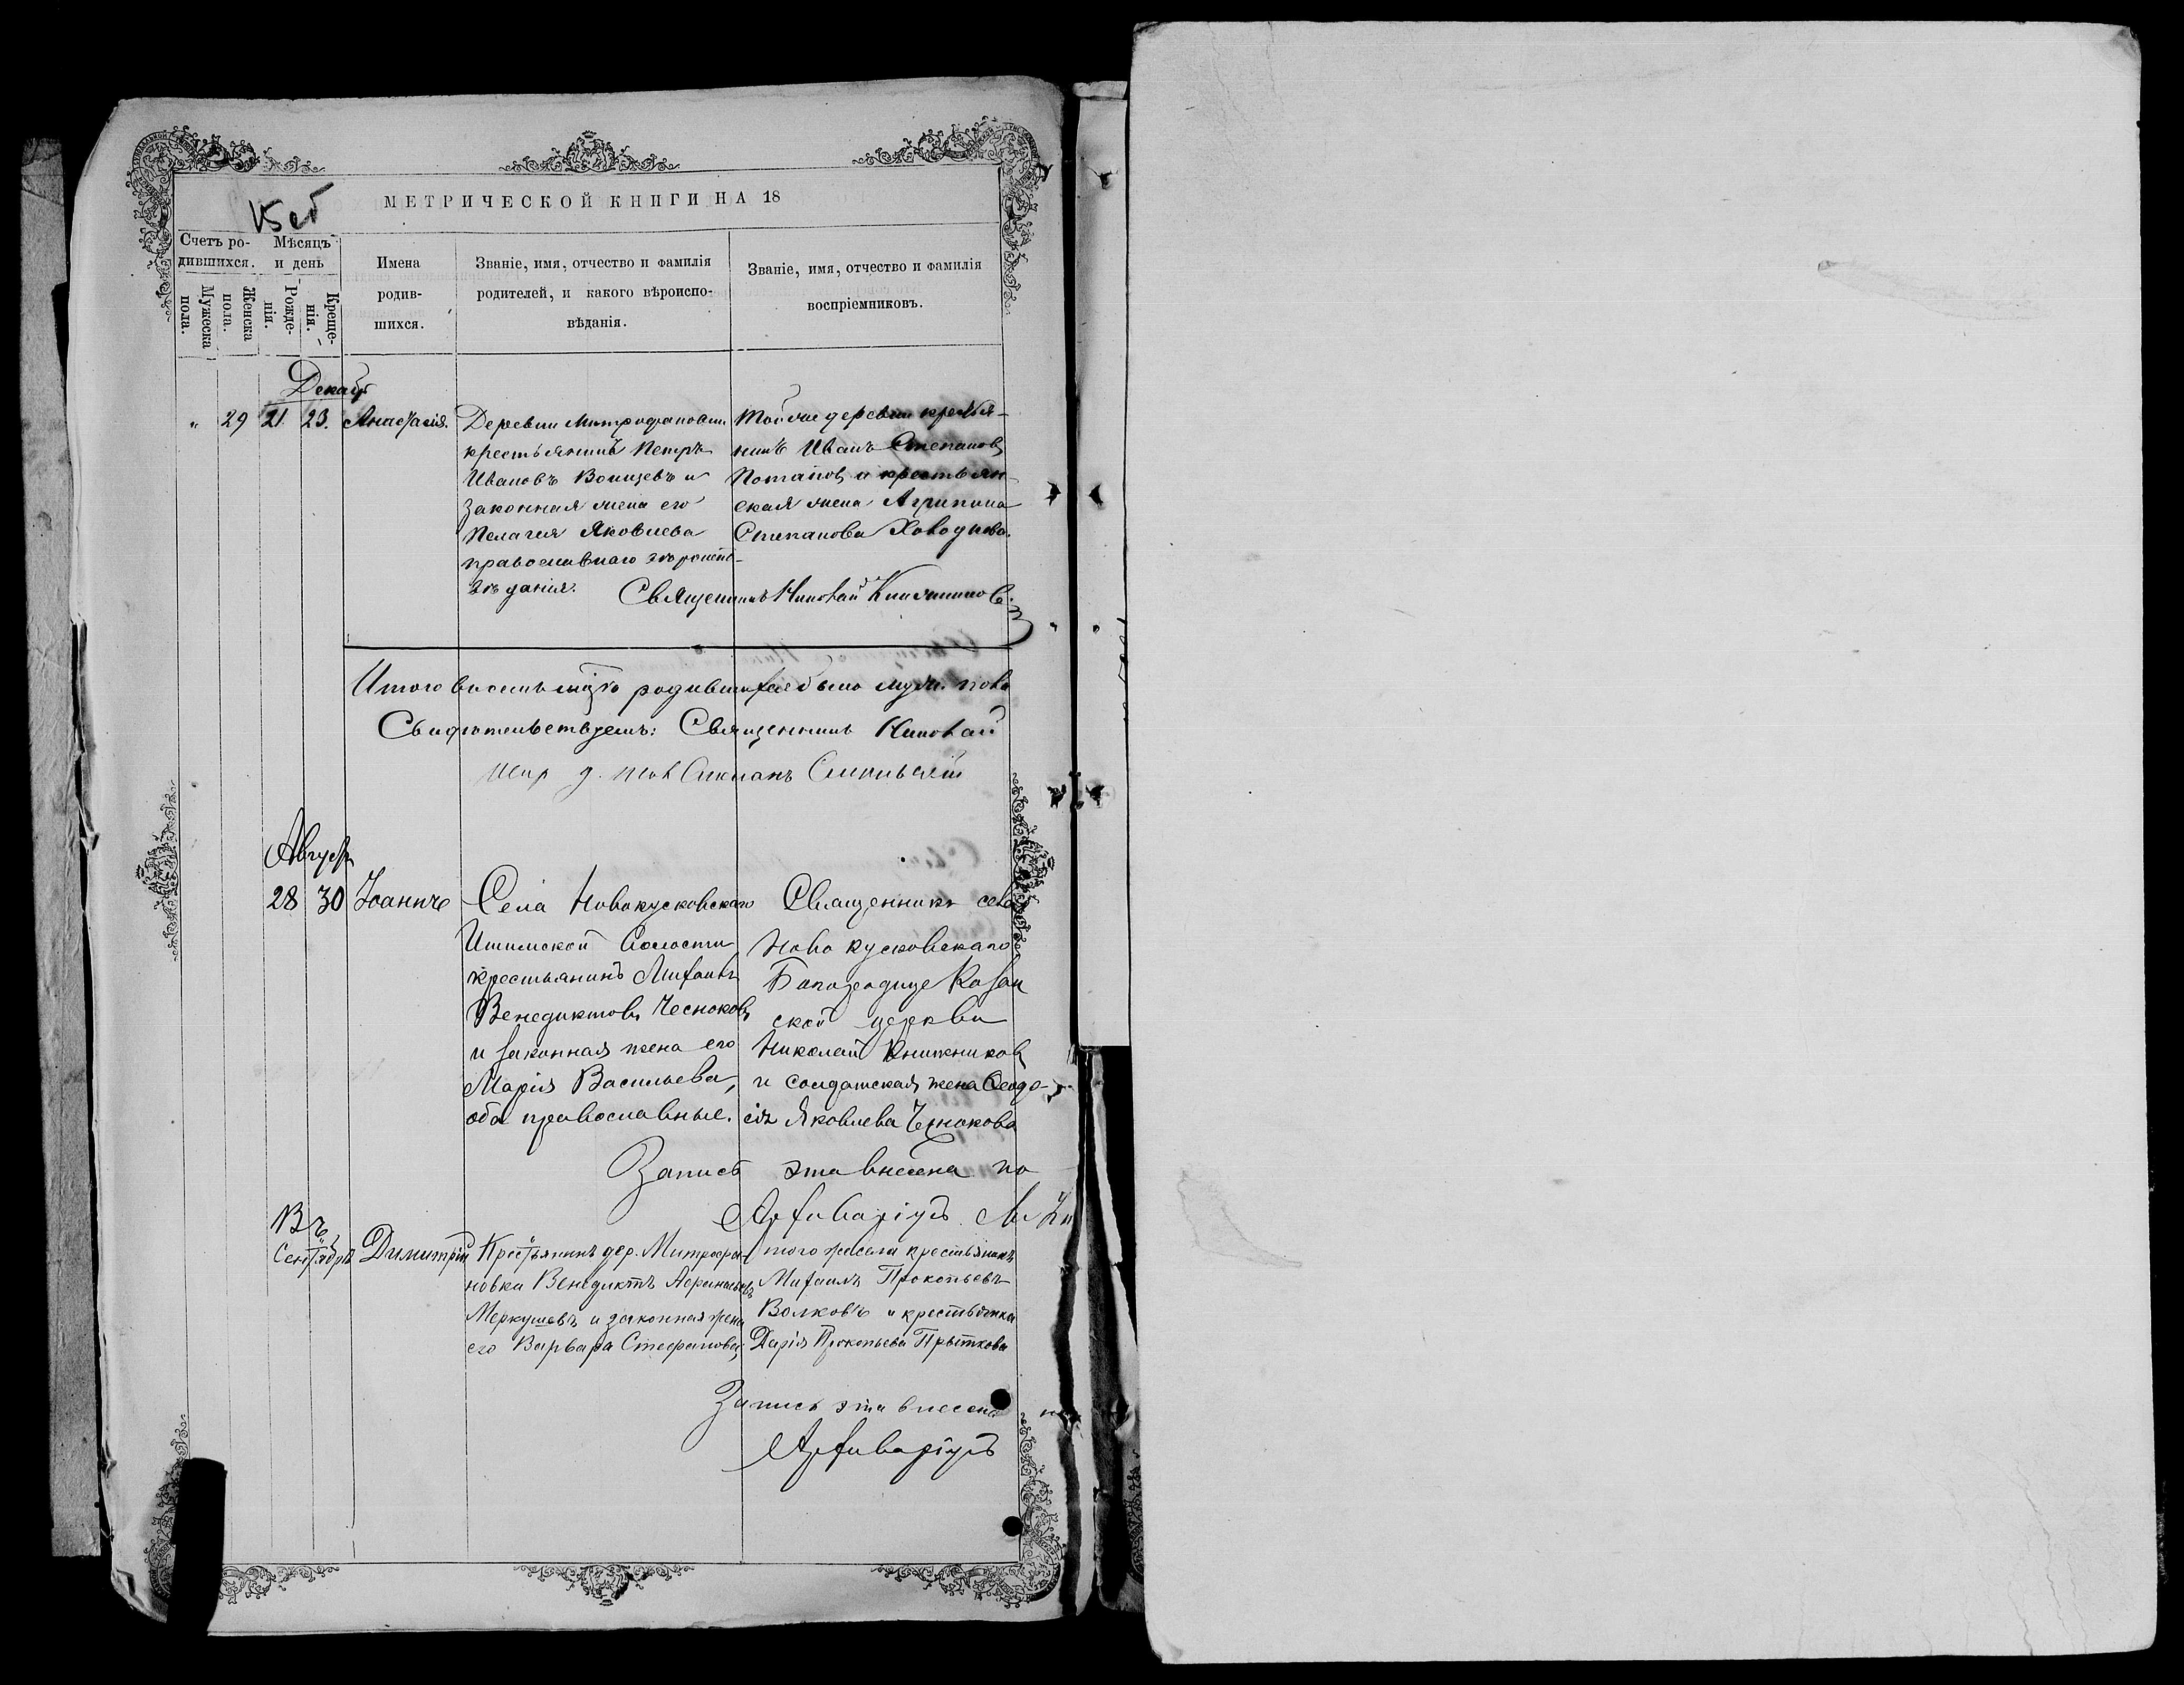 МЕТРИЧЕСКОЙ КНИГИ НА 18
Счетъ ро-
дившихся.
Мужеска
пола.
Женска
пола.
Мѣсяцъ
и день
Рожде-
нія.
Креще-
нія.
Имена
родив-
шихся.
Званіе, имя, отчество и фамилія
родителей, и какого вѣроиспо-
вѣданія.
Званіе, имя, отчество и фамилія
воспріемниковъ.
Декабр
" 29 21. 23. Анастасія.
Деревни Митрофановки
крестьянинъ Петръ
Ивановъ и
законная жена его
Пелагея Яковлева
православнаго вѣроиспо-
вѣданія.
Той же деревни крестья-
нинъ Иванъ Степановъ
Потаповъ и крестьян-
ская жена Агрипина
Степанова
Священникъ Николай Книжниковъ
Итого въ родившихся было муж. пола
Свидѣтельствуемъ: Священникъ Николай
Августъ
28 30 Іоаннъ
Села Новокусковскаго
Ишимской волости
крестьянинъ Михаилъ
Венедиктовъ Чесноковъ
и законная жена его
Марія Васильева,
оба православные.
Священникъ села
Ново кусковскаго
Богородице Казан
ской церкви
Николай Книжниковъ
и солдатская жена Ѳеодо-
сія Яковлева Чеснокова
Запись эта внесена по
Архиваріусъ
Въ
Сентябрѣ Димитрій
Крестьянинъ дер. Митрофа-
новки Венедиктъ Аѳанасьевъ
Меркушевъ и законная жена
его Варвара Стефанова,
того же села крестьянинъ
Михаилъ Прокопьевъ
Волковъ и крестьянка
Дарія Прокопьева Прыткова
Запись эта внесена
Архиваріусъ